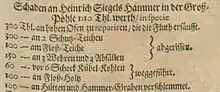 Schaden an Heinrich Siegels Hammer in der Groß-
Pöhle 1182 Thl. werth/ in specie
300 Thl. an hohen Ofen zu repariren/ die die Fluth ersäufft.
300 — an 2 Schutz-Teichen
100 — am Floß-Teiche } abgerissen.
150 — an 3 Wehren und 4 Abfällen
60 — vor 6 Schock Kübel Kohlen } weggeführt.
100 — an Floß-Holtz
100 — an Hütten und Hammer-Graben verschlemmet.